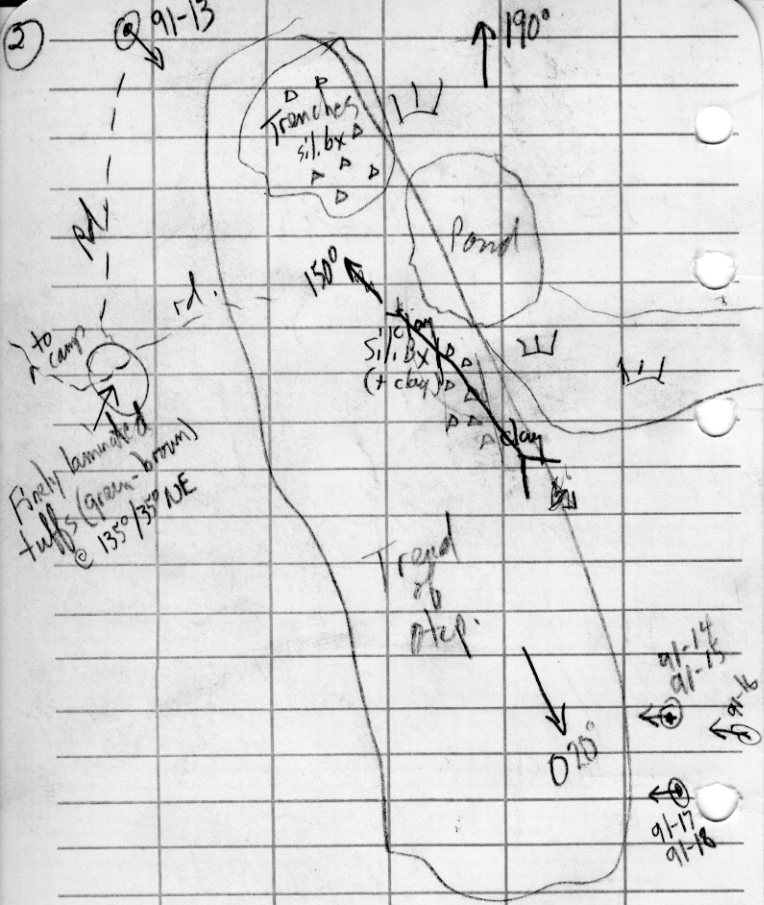 2
91-13
190°
Trenches
sil. bx
Pond
rd.
rd.
150°
to
camp
clay
Sil. bx
(+ clay)
clay
Finely laminated
tuffs (green-brown)
@ 135°/35° NE
Trend
of
otcp.
020°
91-14
91-15
91-16
91-17
91-18